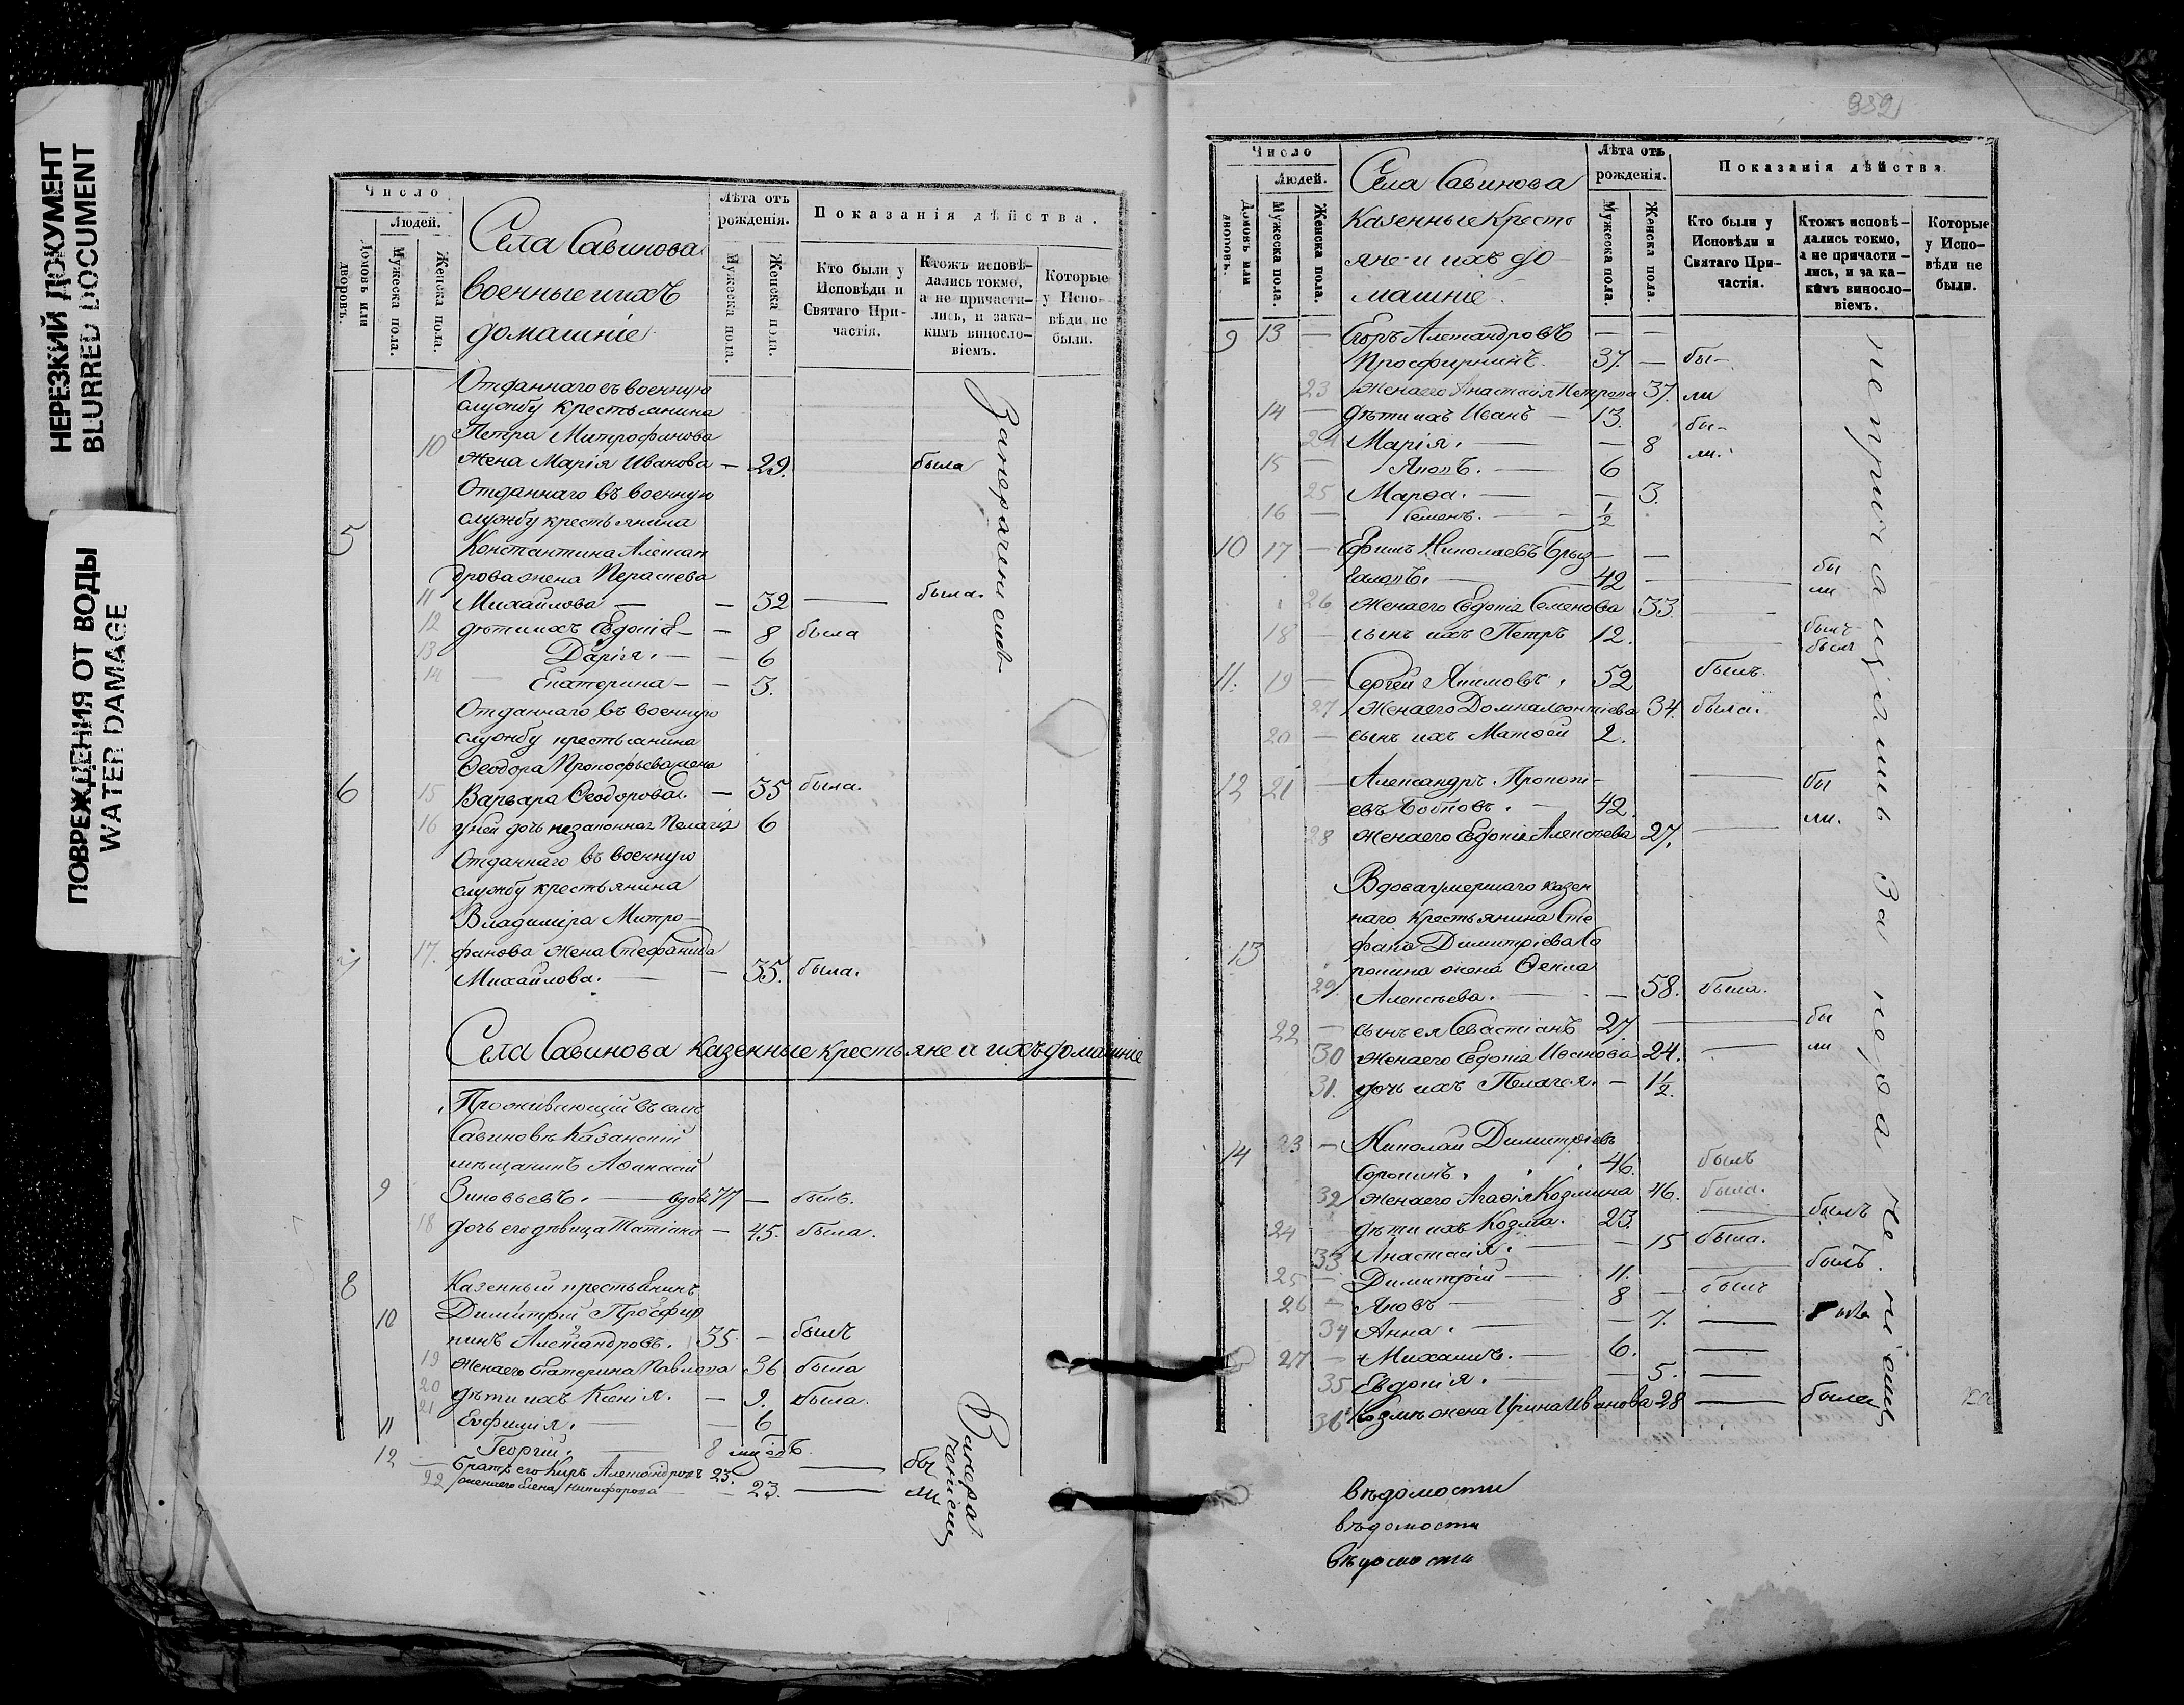 НЕРЕЗКИЙ ДОКУМЕНТ
BLURRED DOCUMENT
ПОВРЕЖДЕНИЯ ОТ ВОДЫ
WATER DAMAGE
Число
Людей.
Домовъ или дворовъ.
Мужеска пола.
Женска пола.
Села Савинова
военные и ихъ
домашніе
Лѣта отъ рожденія.
Мужеска пола.
Женска пола.
Показанія дѣйства.
Кто были у Исповѣди и Святаго Причастія.
Ктожъ исповѣдались токмо, а не причастились, и за какимъ винословіемъ.
Которые у Исповѣди не были.
Отданнаго въ военную
службу крестьянина
Петра Митрофанова
10 жена Марія Иванова — 29. была
Отданнаго въ военную
службу крестьянина
5 Константина Алексан
дрова жена
11 Михайлова — — 32 — была.
12 дѣти ихъ Евдокія — — 8 была
13 Дарія. — — 6
14 Екатерина — — 3.
Отданнаго въ военную
службу крестьянина
Ѳеодора Прокофьева жена
6 15 Варвара Ѳеодорова. — 35 была.
16 у ней дочь незаконная Пелагія 6
Отданнаго въ военную
службу крестьянина
Владиміра Митро-
17. фанова жена Стефанида
Михайлова. — — 35. была.
Села Савинова казенные крестьяне и ихъ домашніе
Проживающій въ селѣ
Савиновѣ Казанскій
мѣщанинъ Аѳанасій
9 Зиновьевъ. — вдовъ 77 — былъ.
18 дочь его дѣвица Татіана — 45. была.
8 Казенный крестьянинъ
10 Димитрій Просфир
нинъ Александровъ. 35. — былъ
19 жена его Екатерина Павлова 36 была
20 дѣти ихъ Ксенія. — 9. была.
21 Евфимія. — — 6
11 Георгій. — 8
12 — братъ его Киръ Александровъ 23. — бы
22 жена его Елена Никифорова — 23. — ли
Число
Людей.
Домовъ или дворовъ.
Мужеска пола.
Женска пола.
Села Савинова
казенные кресть
яне и ихъ до
машніе.
Лѣта отъ рожденія.
Мужеска пола.
Женска пола.
Показанія дѣйства.
Кто были у Исповѣди и Святаго Причастія.
Ктожъ исповѣдались токмо, а не причастились, и за какимъ винословіемъ.
Которые у Исповѣди не были.
9 13 — Егоръ Александровъ — —
Просфирнинъ. 37. — бы-
23 жена его Анастасія Петрова 37. ли
14 — дѣти ихъ Иванъ — 13. бы-
24 Марія. — — 8 ли.
15 — Яковъ. — 6
25 Марѳа. — — 3.
16 — Семенъ. — 1/2
10 17 — Ефимъ Николаевъ
42 — бы
26 жена его Евдокія Семенова 33. — ли
18 — сынъ ихъ Петръ 12. — былъ
11. 19 — Сергей Якимовъ. 52 былъ.
27 жена его Домна Леонтіева 34. была.
20 — сынъ ихъ Матѳей 2.
12 21 — Александръ Прокопі-
евъ 42. — бы
28 жена его Евдокія Алексѣева 27. — ли.
Вдова умершаго казен
наго крестьянина Сте
13 фана Димитріева Со
рокина жена Ѳекла
29. Алексѣева. — — 58. была.
22 — сынъ ея Севастіанъ 27. — бы
30 жена его Евдокія Иванова 24. — ли
31. дочь ихъ Пелагея. — 1 1/2.
14 23 — Николай Димитріевъ
Сорокинъ. 46. былъ
32 жена его Агаѳія Козмина 46. была.
24 дѣти ихъ Козма. 23. — былъ
33 Анастасія. — — 15 была.
25 — Димитрій — 11. — былъ.
26 — Яковъ — 8 — былъ
34 Анна. — — 7. —
27 — Михаилъ. — 6. —
35 Евдокія. — — 5. —
36 Козмы жена Ирина Иванова 28 — была
не причащались За нерадѣніемъ
вѣдомости
вѣдомости
вѣдомости